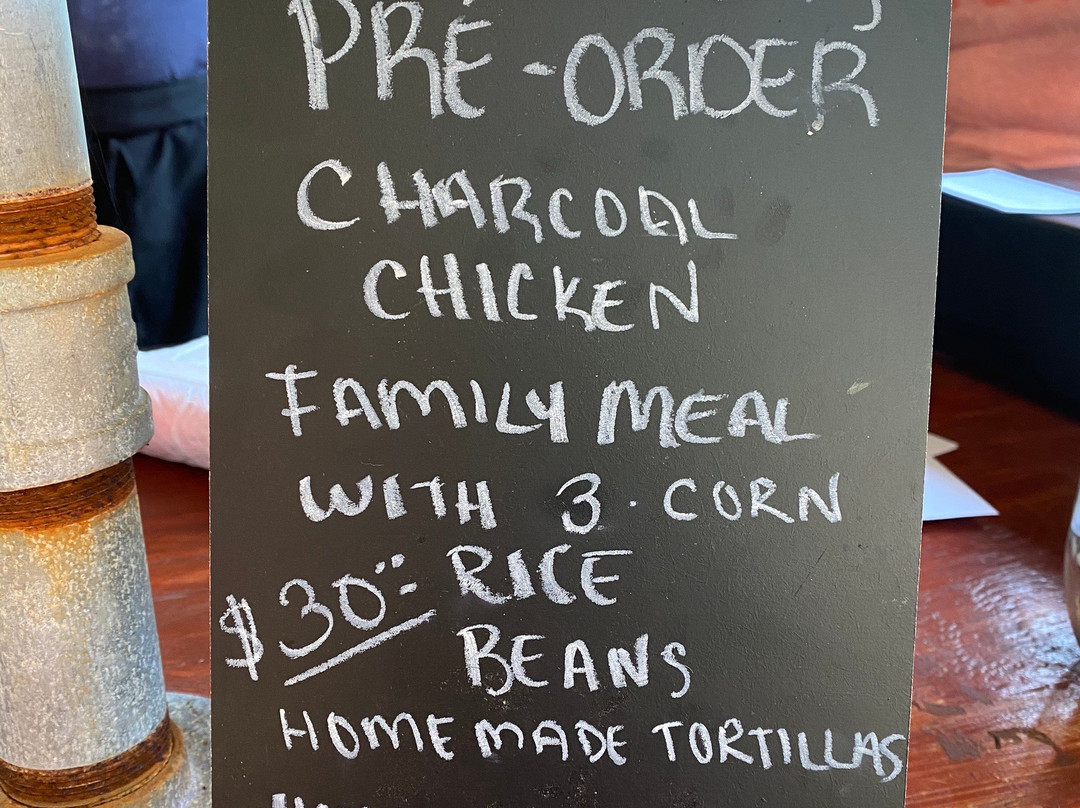 PRE-ORDER
CHARCOAL
CHICKEN
FAMILY MEAL
WITH 3. CORN
$30 RICE
BEANS
HOME MADE TORTILLAS